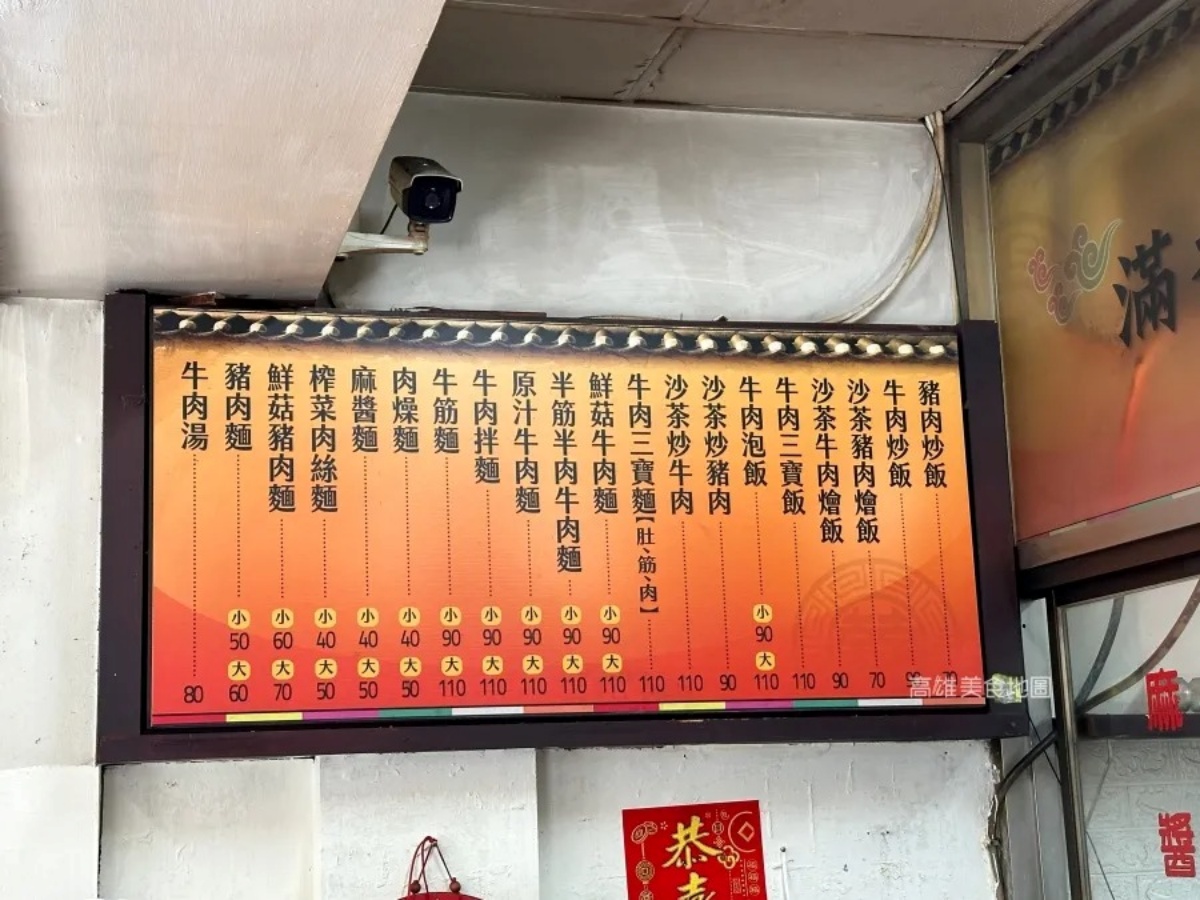 豬肉炒飯
牛肉炒飯
沙茶豬肉燴飯 70
沙茶牛肉燴飯 90
牛肉三寶飯 110
牛肉泡飯 小 90 大 110
沙茶炒豬肉 90
沙茶炒牛肉 110
牛肉三寶麵【肚、筋、肉】 110
鮮菇牛肉麵 小 90 大 110
半筋半肉牛肉麵 小 90 大 110
原汁牛肉麵 小 90 大 110
牛肉拌麵 小 90 大 110
牛筋麵 小 90 大 110
肉燥麵 小 40 大 50
麻醬麵 小 40 大 50
榨菜肉絲麵 小 40 大 50
鮮菇豬肉麵 小 60 大 70
豬肉麵 小 50 大 60
牛肉湯 80
高雄美食地圖
滿
麻醬
恭